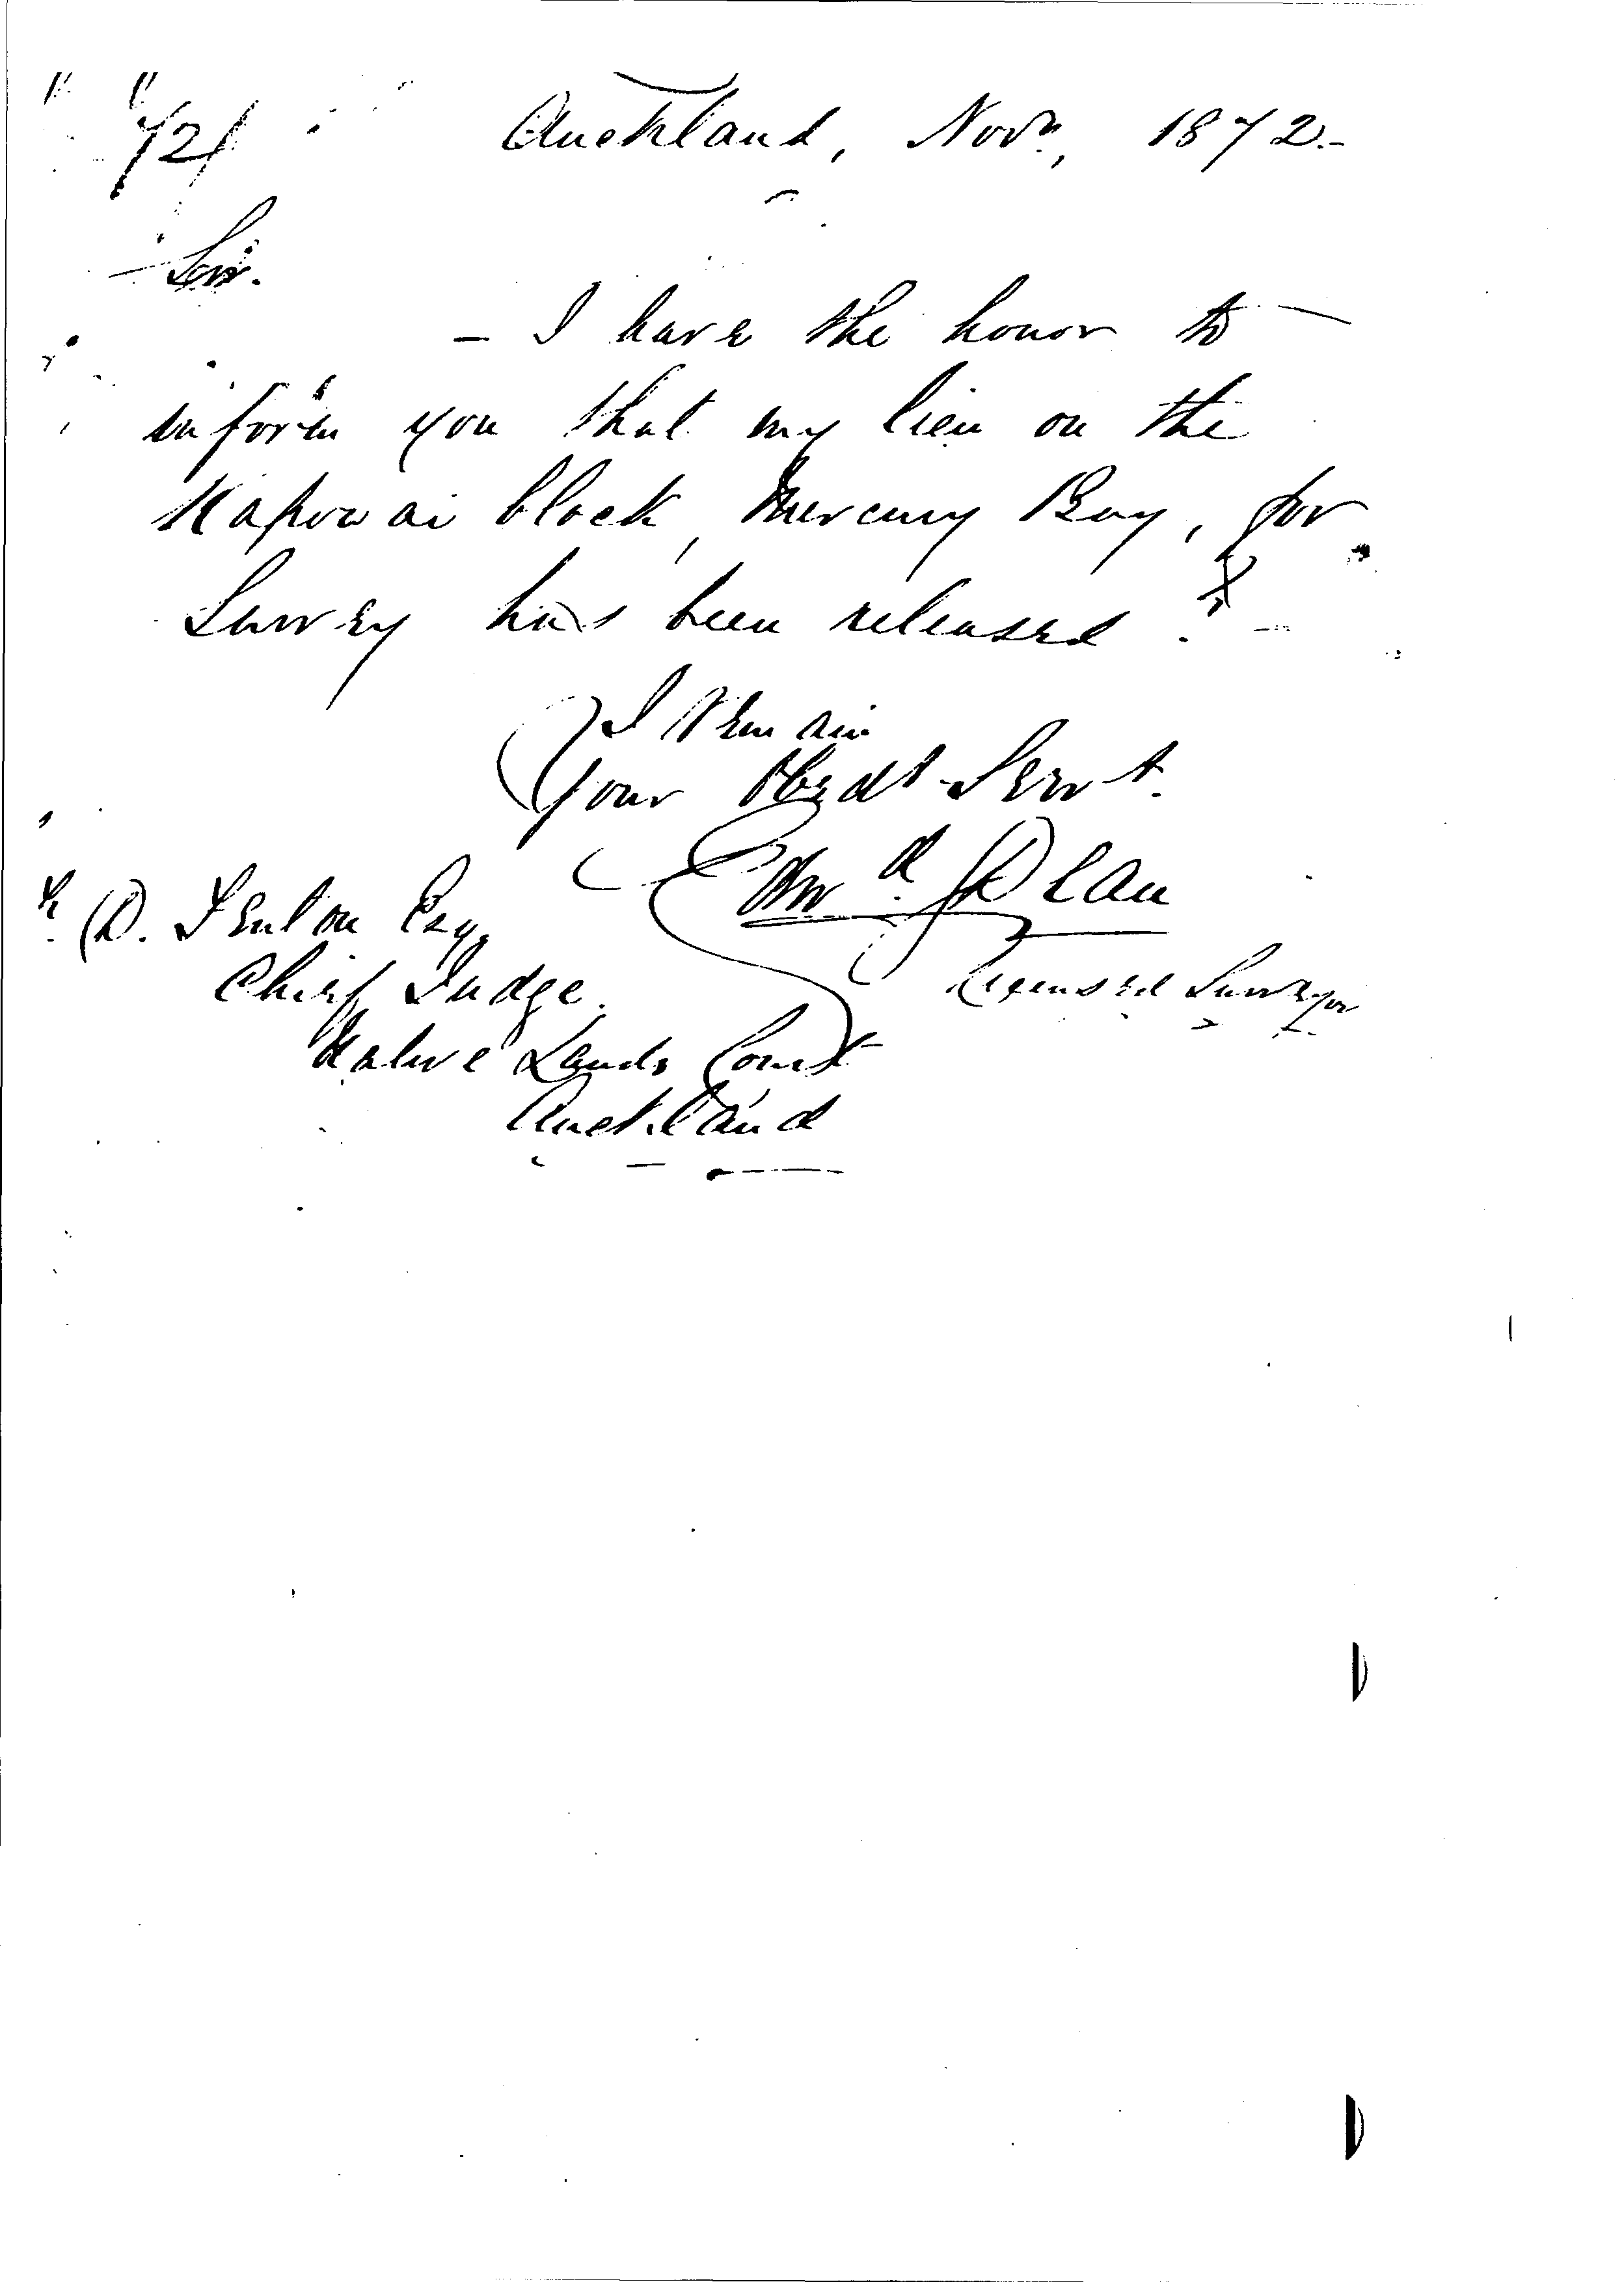 Auckland, Novr, 1872.-
Sir.
- I have the honor to
inform you that my lien on the
Kapowai block, Mercury Bay, for
Survey has been released.
I Remain
Your Obedt Servt.
Edwd. Dean
Licensed Surveyor
D. Fenton Esq.
Chief Judge.
Native Lands Court
Auckland